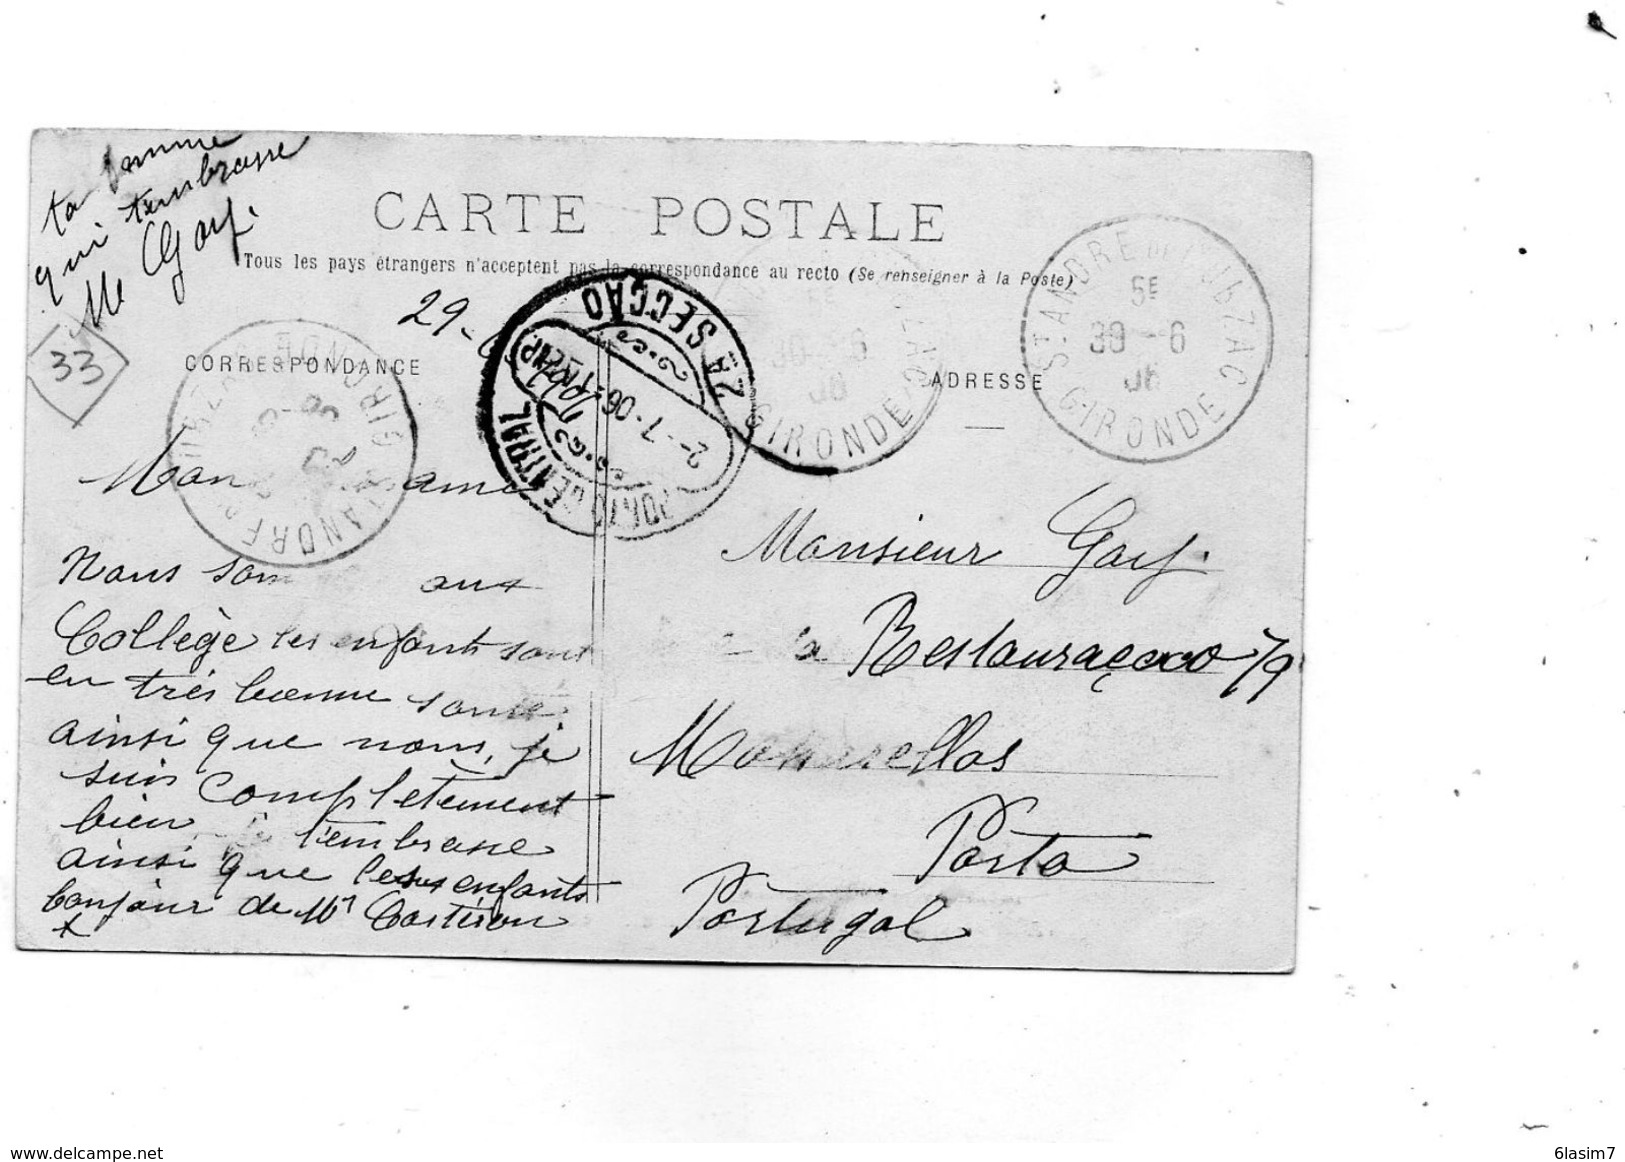 ta femme
qui t'embrasse
Me Gary.
CARTE POSTALE
Tous les pays étrangers n'acceptent pas la correspondance au recto (Se renseigner à la Poste)
29-6
33
CORRESPONDANCE
ADRESSE
PORTO CENTRAL
2-7-06
2A SECÇÃO
GIRONDE
30-6
06
ST ANDRE DE CUBZAC
5E
30-6
06
GIRONDE
Mon ami
Nous som aux
Collège les enfants sont
en très bonne santé
ainsi que nous, je
suis complètement
bien je t'embrasse
ainsi que les enfants
bonjour de Mr
Monsieur Gary.
Restauração 79
Porto
Portugal
www.delcampe.net
6lasim7